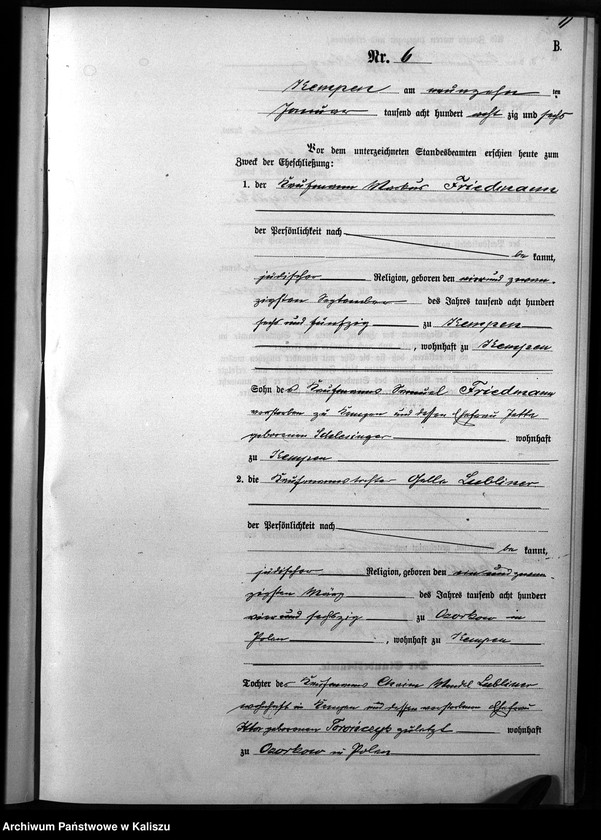 11
B.
Nr. 6
Kempen am neunzehn ten
Januar tausend acht hundert acht zig und sechs
Vor dem unterzeichneten Standesbeamten erschien heute zum
Zweck der Eheschließung:
1. der Kaufmann Markus Friedmann
der Persönlichkeit nach
be kannt,
jüdischer Religion, geboren den vier und zwan-
zigsten September des Jahres tausend acht hundert
sechs und fünfzig zu Kempen
, wohnhaft zu Kempen
Sohn des Kaufmanns Samuel Friedmann
verstorben zu Kempen und dessen Ehefrau Jette
geborenen Schlesinger wohnhaft
zu Kempen
2. die Kaufmannstochter Lubliner
der Persönlichkeit nach
be kannt,
jüdischer Religion, geboren den ein und zwan-
zigsten März des Jahres tausend acht hundert
vier und sechszig zu Ozorkow in
Polen , wohnhaft zu Kempen
Tochter des Kaufmanns Chaim Mendel Lubliner
wohnhaft in Kempen und dessen verstorbenen Ehefrau
geborenen zuletzt wohnhaft
zu Ozorkow in Polen
Archiwum Państwowe w Kaliszu